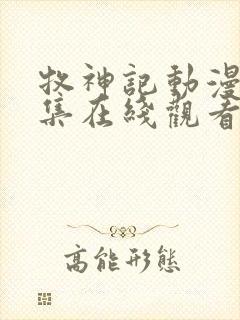 牧神記動漫
集在綫觀看
高能形態